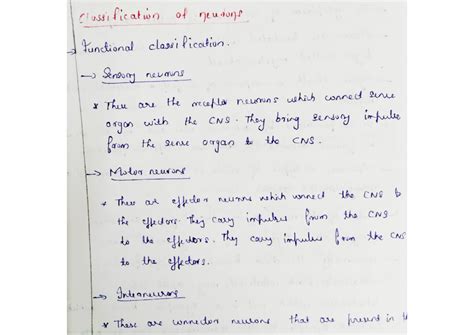 Classification of neurons
→ Functional classification.
→ Sensory neurons
* These are the receptor neurons which connect sense
organ with the CNS. They bring sensory impulse
from the sense organ to the CNS.
→ Motor neurons
* These are effector neurons which connect the CNS to
the effectors. They cary impulses from the CNS
to the effectors. They cary impulses from the CNS
to the effectors.
→ Interneurons
* These are connector neurons that are present in the